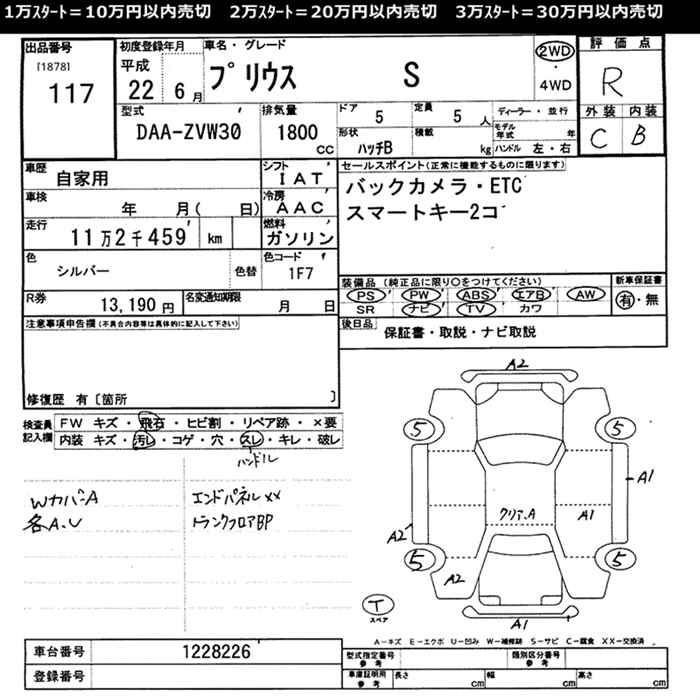 1万ｽﾀｰﾄ＝10万円以内売切　2万ｽﾀｰﾄ＝20万円以内売切　3万ｽﾀｰﾄ＝30万円以内売切
出品番号
[1878]
117
初度登録年月
平成
22 6月
車名・グレード
プリウス S
2WD
・
4WD
評価点
R
外装 内装
C B
型式
DAA-ZVW30
排気量
1800 cc
ドア 5
定員 5 人
形状 ハッチB
積載 kg
ディーラー・並行
モデル年式 年
ハンドル 左・右
車歴 自家用
シフト IAT
車検 年 月( 日)
冷房 AAC
走行 11万2千459 km
燃料 ガソリン
色 シルバー 色替
色コード 1F7
R券 13,190円
名変通知期限 月 日
セールスポイント(正常に機能するものに限ります)
バックカメラ・ETC
スマートキー2コ
装備品(純正品に限り○をつけてください)
PS PW ABS エアB AW
SR ナビ TV カワ
新車保証書
有・無
後日品 保証書・取説・ナビ取説
注意事項申告欄(不具合内容等は具体的に記入して下さい)
修復歴 有〔箇所 〕
検査員記入欄
FW キズ・飛石・ヒビ割・リペア跡・×要
内装 キズ・汚レ・コゲ・穴・スレ・キレ・破レ
ハンドル
WカバーA
各A.U
エンドパネルXX
トランクフロアBP
A2
5
5
A1
クリア.A
A1
A2
5
5
A2
A1
T
スペア
A－キズ E－エクボ U－凹み W－補修跡 S－サビ C－腐食 XX－交換済
車台番号 1228226
登録番号
型式指定番号 参考
類別区分番号 参考
車庫証明用 参考
長さ cm
幅 cm
高さ cm